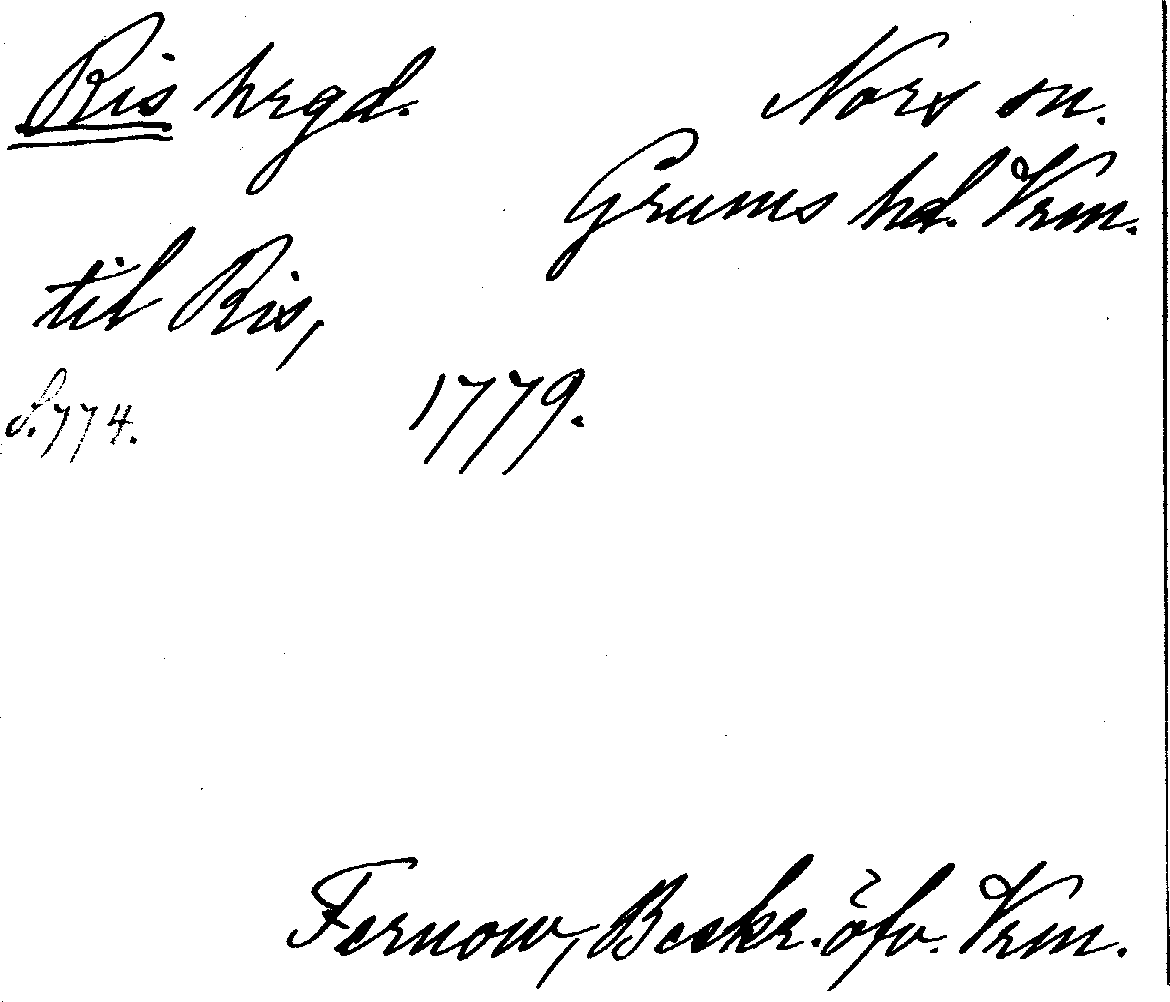 Ris hrgd. Nors sn.
Grums hd. Vrm.
til Ris,
S. 774. 1779.
Fernow, Beskr. öfv. Vrm.